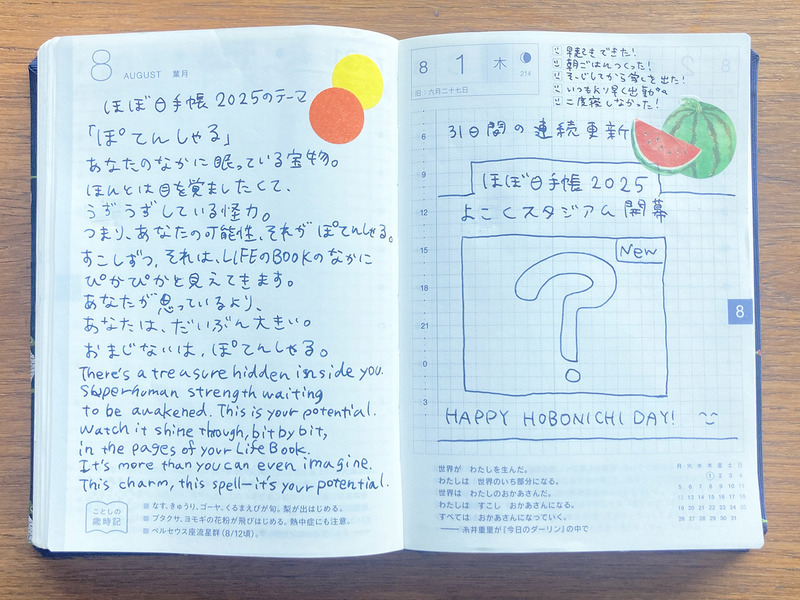 8 AUGUST 葉月
ほぼ日手帳 2025のテーマ
「ぽてんしゃる」
あなたのなかに眠っている宝物。
ほんとは目を覚ましたくて、
うずうずしている怪力。
つまり、あなたの可能性、それがぽてんしゃる。
すこしずつ、それは、LIFEのBOOKのなかに
ぴかぴかと見えてきます。
あなたが思っているより、
あなたは、だいぶん大きい。
おまじないは、ぽてんしゃる。
There's a treasure hidden inside you.
Superhuman strength waiting
to be awakened. This is your potential.
Watch it shine through, bit by bit,
in the pages of your Life Book.
It's more than you can even imagine.
This charm, this spell—it's your potential.
ことしの
歳時記
■ なす、きゅうり、ゴーヤ、くるまえびが旬。梨が出はじめる。
■ ブタクサ、ヨモギの花粉が飛びはじめる。熱中症にも注意。
■ ペルセウス座流星群(8/12頃)。
8 1 木
214
旧:六月二十七日
早起きできた!
朝ごはんつくった!
そうじしてから家を出た!
いつもより早く出勤
二度寝しなかった!
31日間の連続更新
ほぼ日手帳 2025
よこくスタジアム開幕
New
?
HAPPY HOBONICHI DAY!
6
9
12
15
18
21
0
3
8
世界が わたしを生んだ。
わたしは 世界のいち部分になる。
世界は わたしのおかあさんだ。
わたしは すこし おかあさんになる。
すべては おかあさんになっていく。
—— 糸井重里が『今日のダーリン』の中で
月 火 水 木 金 土 日
1 2 3 4
5 6 7 8 9 10 11
12 13 14 15 16 17 18
19 20 21 22 23 24 25
26 27 28 29 30 31